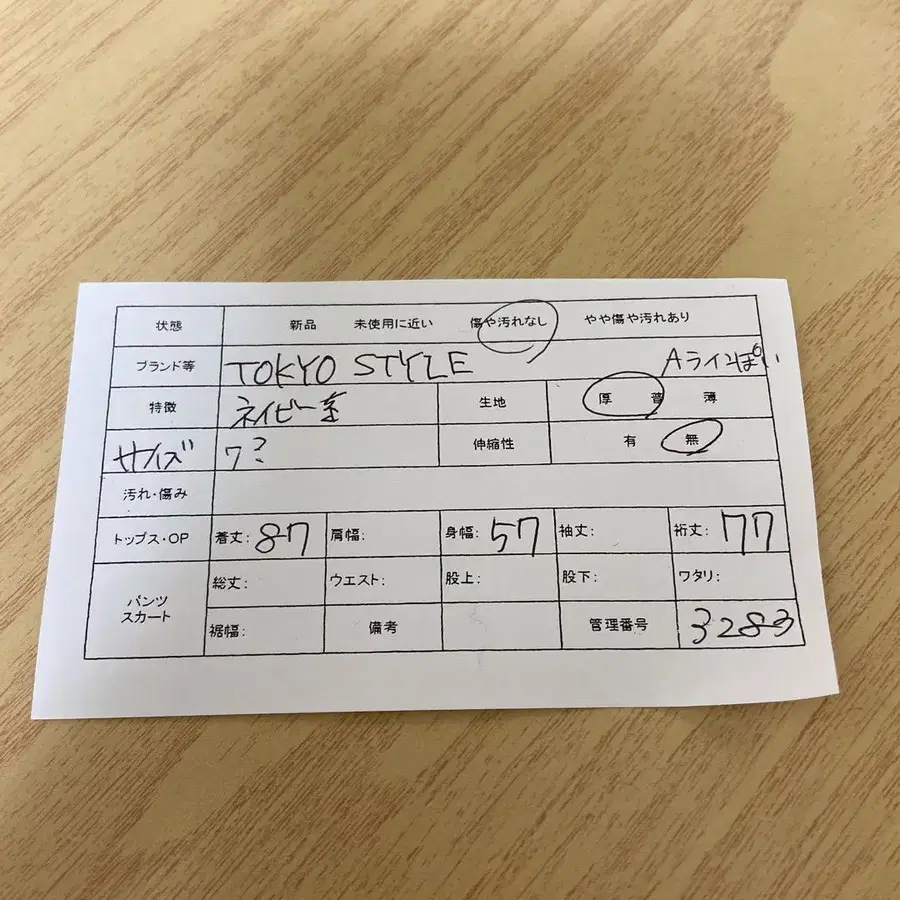 状態 新品 未使用に近い 傷や汚れなし やや傷や汚れあり
ブランド等 TOKYO STYLE Aラインぽい
特徴 ネイビー系 生地 厚 普 薄
サイズ 7? 伸縮性 有 無
汚れ・傷み
トップス・OP 着丈: 87 肩幅: 身幅: 57 袖丈: 裄丈: 77
パンツ スカート 総丈: ウエスト: 股上: 股下: ワタリ:
裾幅: 備考 管理番号 3283